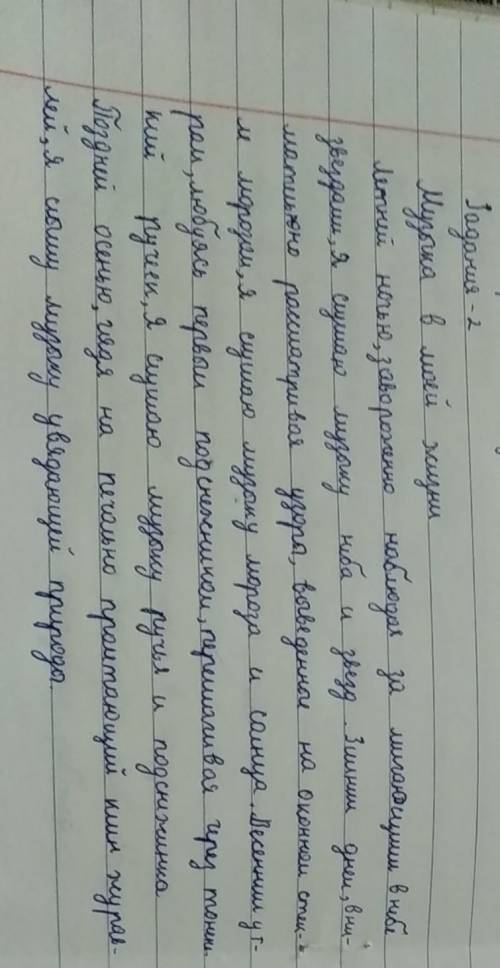 Задания-2
Музыка в моей жизни
Летней ночью, завороженно наблюдая за мигающими в небе
звездами, я слушаю музыку неба и звезд. Зимним днем, вни-
мательно рассматривая узоры, выведенные на оконном стек-
ле морозом, я слушаю музыку мороза и солнца. Весенним ут-
ром, любуясь первым подснежником, перешагивая через тонень
кий ручеек, я слушаю музыку ручья и подснежника
Поздней осенью, глядя на печально пролетающий клин журав-
лей, я слышу музыку увядающей природы.